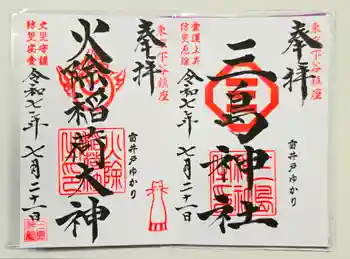 奉拝
東京下谷鎮座
三島神社
雷井戸ゆかり
令和七年
七月二十一日
奉拝
東京下谷鎮座
火除稲荷大神
雷井戸ゆかり
火災守護
防災安全
令和七年
七月二十一日